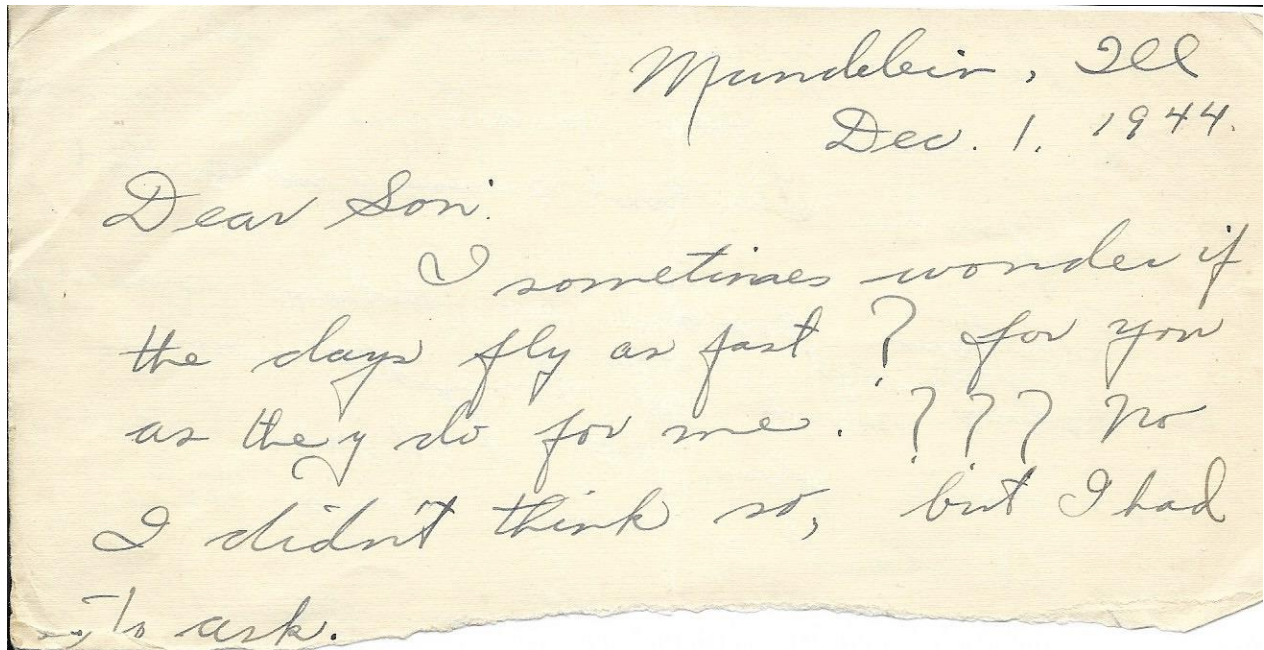 Mundelein, Ill
Dec. 1. 1944.
Dear Son:
I sometimes wonder if
the days fly as fast ? for you
as they do for me. ? ? ? No
I didn't think so, but I had
to ask.